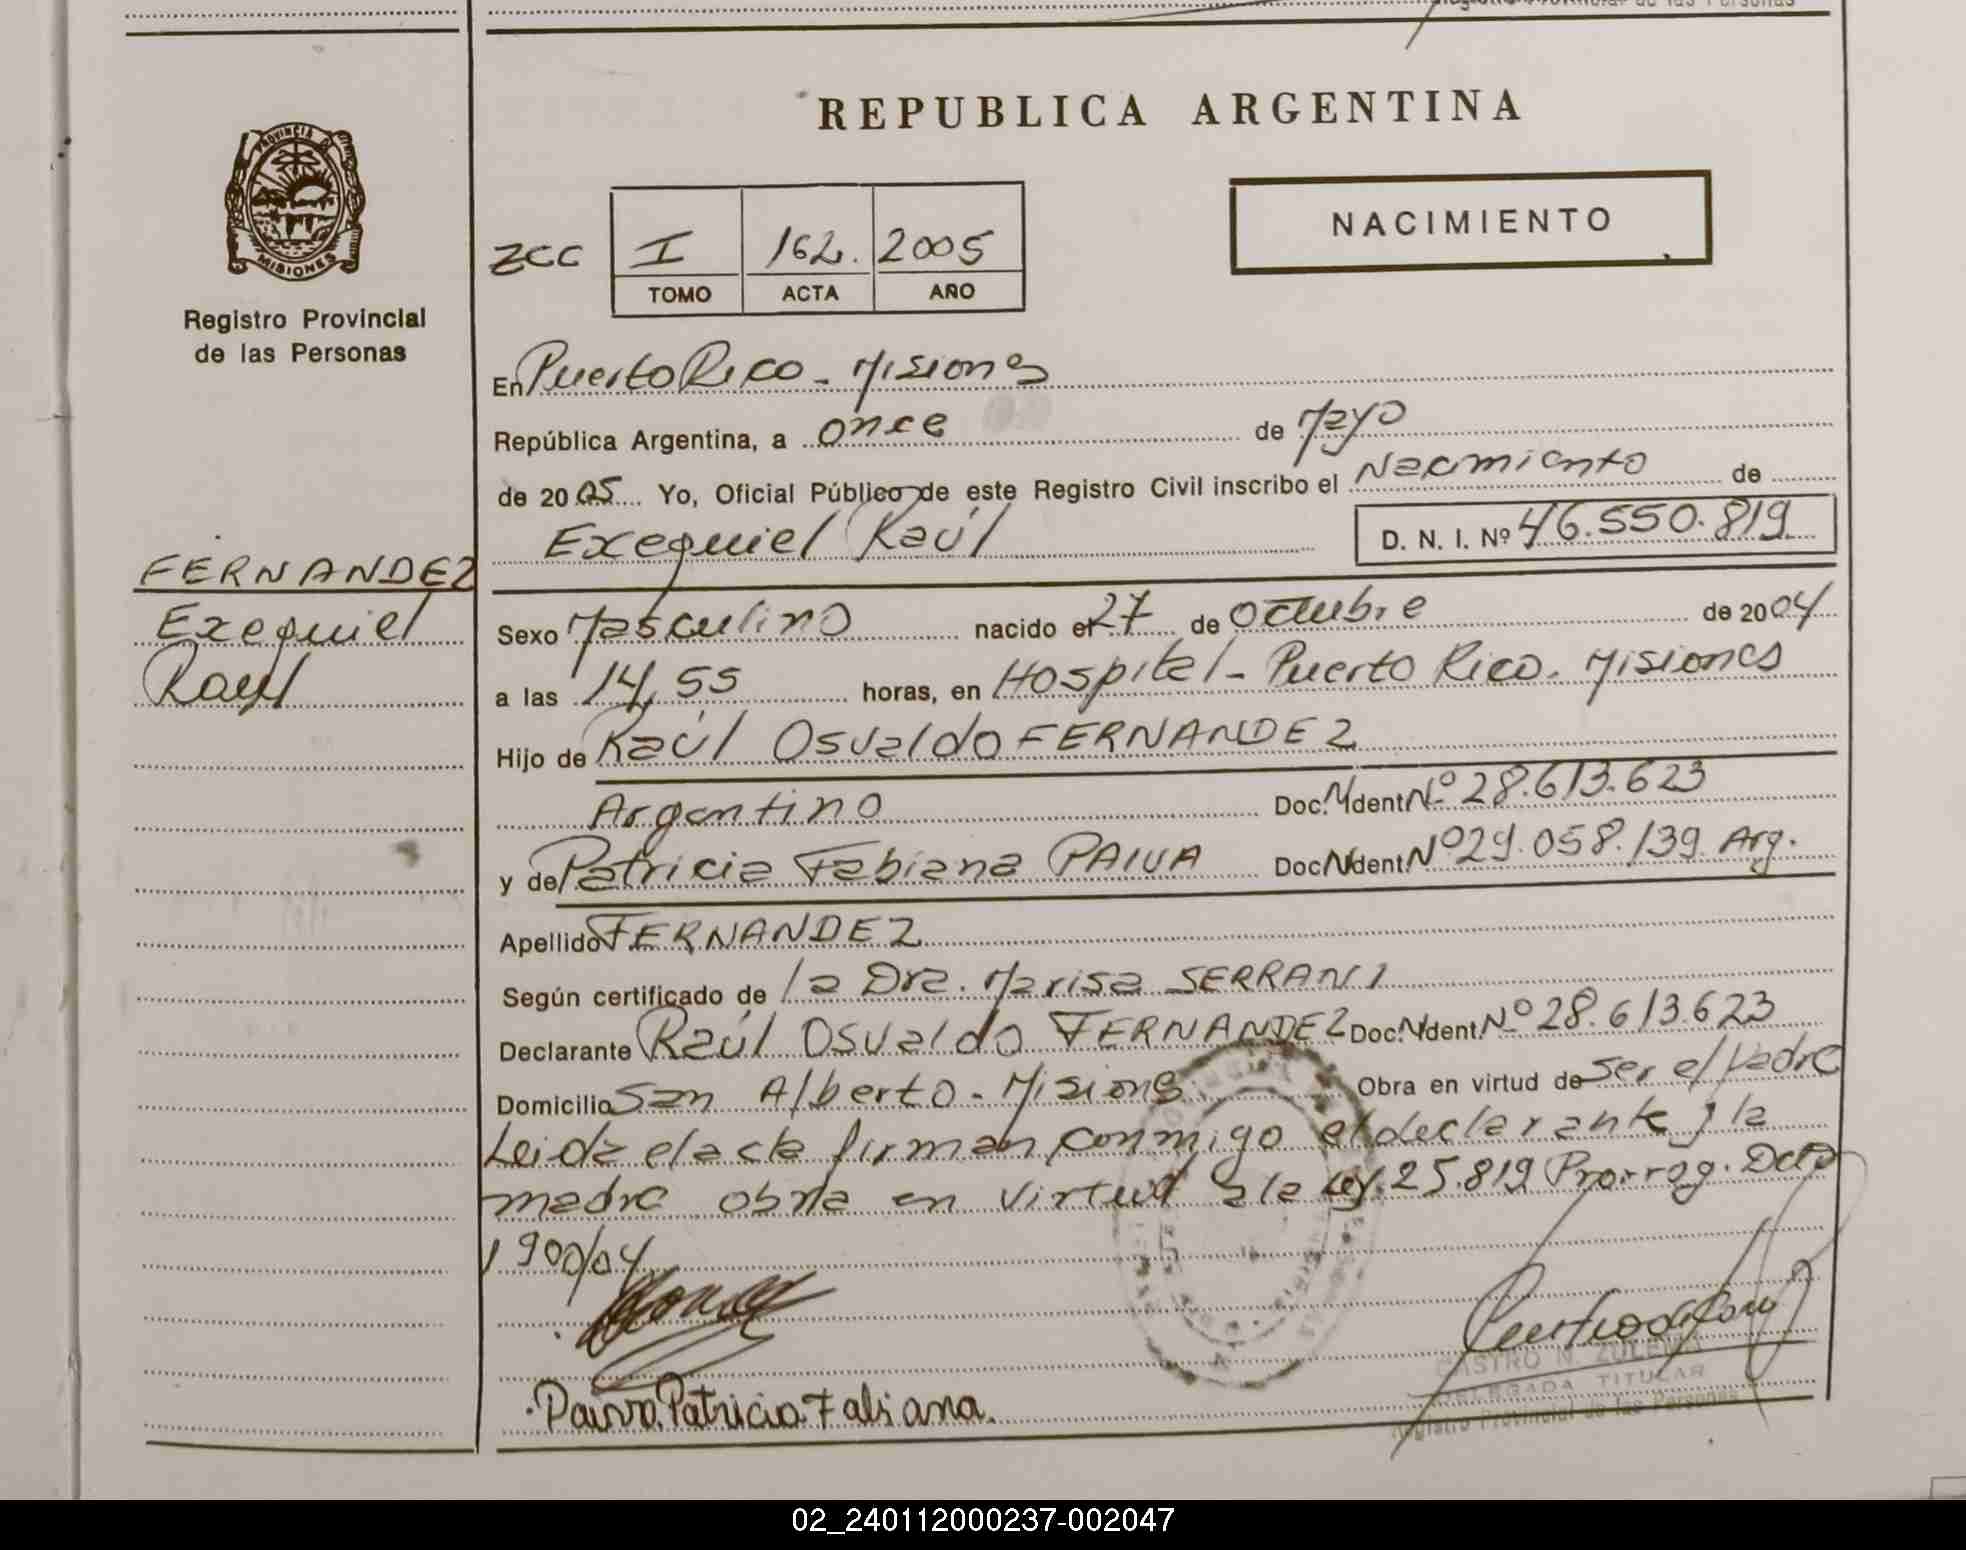 REPUBLICA ARGENTINA
PROVINCIA DE
MISIONES
Registro Provincial
de las Personas
NACIMIENTO
ZCC I 162. 2005
TOMO ACTA AÑO
En Puerto Rico - Misiones
República Argentina, a once de Mayo
de 2005 Yo, Oficial Público de este Registro Civil inscribo el Nacimiento de
Exequiel Raúl D. N. I. Nº 46.550.819
FERNANDEZ
Exequiel
Raúl
Sexo Masculino nacido el 27 de Octubre de 2004
a las 14,55 horas, en Hospital - Puerto Rico. Misiones
Hijo de Raúl Osvaldo FERNANDEZ
Argentino Doc. N. Ident. Nº 28.613.623
y de Patricia Fabiana PAIVA Doc. N. Ident. Nº 29.058.139 Arg.
Apellido FERNANDEZ
Según certificado de la Dra. Marisa SERRANI
Declarante Raúl Osvaldo FERNANDEZ Doc. N. Ident. Nº 28.613.623
Domicilio San Alberto - Misiones Obra en virtud de ser el Padre
Leida el acta firman conmigo el declarante y la
madre obra en virtud a la Ley. 25.819 Prorrog. Dcto
1900/04
Paiva Patricia Fabiana.
CASTRO N. ZULEMA
DELEGADA TITULAR
Registro Provincial de las Personas
02_240112000237-002047